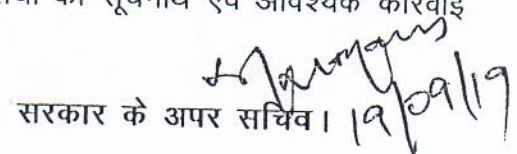 को सूचनार्थ एवं आवश्यक कार्रवाई
सरकार के अपर सचिव। 19/09/19